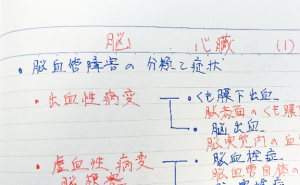 脳 心臓 (1)
・脳血管障害の分類と症状
・出血性病変 ・くも膜下出血
脳表面のくも膜
・脳出血
脳実質内の血
・虚血性病変 ・脳血栓症
脳梗塞 脳血管自体の